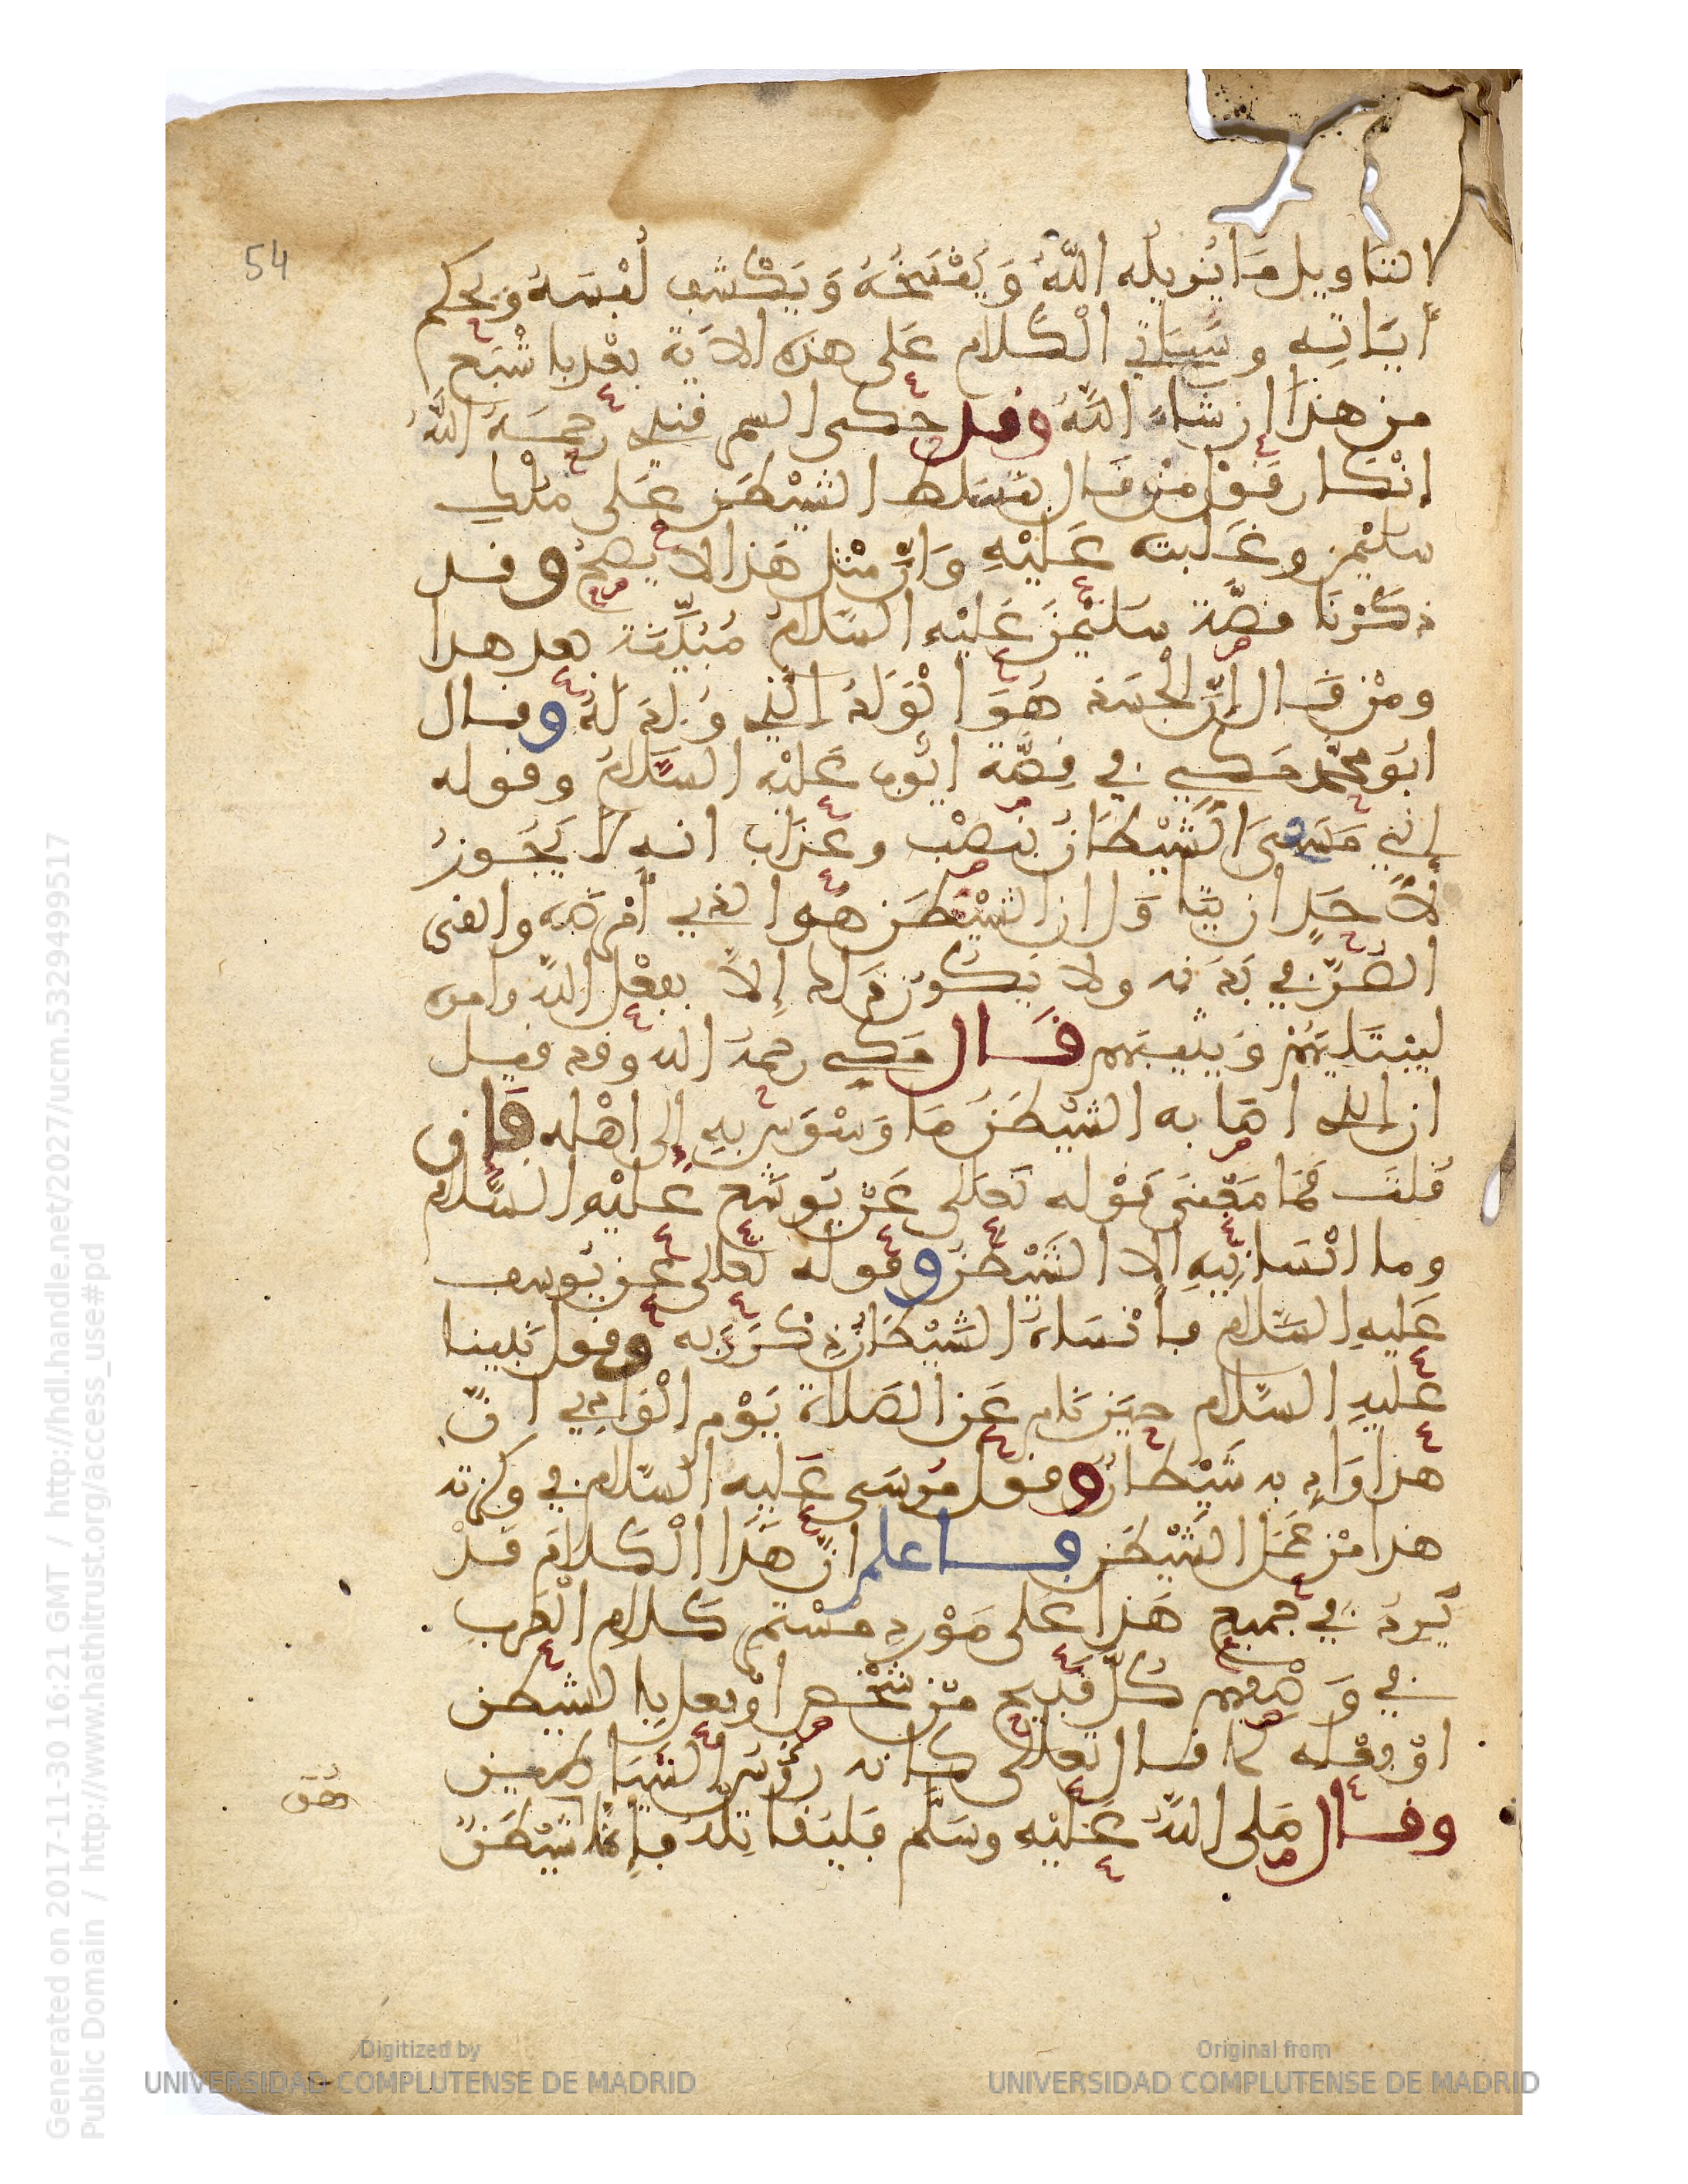 54
التاويل ما يزيله الله وينسخه ويكشف لبسه ويحكم
ءاياته وسياتي الكلام على هذه الاية بعد باشبع
من هذا ان شاء الله وقد حكى السمرقندي رحمه الله
انكار قول من قال بتسلط الشيطن على ملك
سليمن وغلبته عليه وان مثل هذا لا يصح وقد
ذكرنا قصة سليمن عليه السلام مبينة بعد هذا
ومن قال ان الجسد هو الولد الذي ولد له وقال
ابو محمد مكي في قصة ايوب عليه السلام وقوله
إني مسني الشيطان بنصب وعذاب انه لا يجوز
لأحد ان يتاول ان الشيطن هو الذي امرضه والقى
الضر في بدنه ولا يكون ذلك إلا بفعل الله وامره
ليبتليهم ويثيبهم قال مكي رحمه الله وقد قيل
ان الذي اصابه الشيطن ما وسوس به إلى اهله فان
قلت فما معنى قوله تعلى عن يوشع عليه السلام
وما انسانيه الا الشيطن وقوله تعلى عن يوسف
عليه السلام فأنساه الشيطان ذكر ربه وقول نبينا
عليه السلام حين نام عن الصلاة يوم الوادي ان
هذا واد به شيطان وقول موسى عليه السلام في وكزته
هذا من عمل الشيطن فاعلم ان هذا الكلام قد
يرد في جميع هذا على مورد مستمر كلام العرب
في وصفهم كل قبيح من شخص او فعل بالشيطن
او فعله كما قال تعلى كانه رءوس الشياطين
وقال صلى الله عليه وسلم فليقاتله فإنما شيطن
هو
Generated on 2017-11-30 16:21 GMT / http://hdl.handle.net/2027/ucm.5329499517
Public Domain / http://www.hathitrust.org/access_use#pd
Digitized by
UNIVERSIDAD COMPLUTENSE DE MADRID
Original from
UNIVERSIDAD COMPLUTENSE DE MADRID